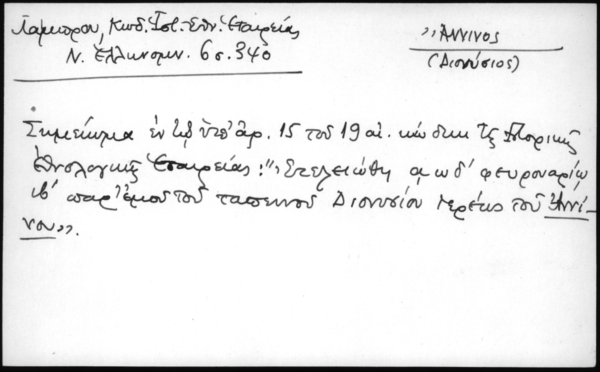 Λάμπρου, Κωδ. Ἱστ.-Εθν. Ἑταιρείας
Ν. Ἑλληνομν. 6 σ. 340
Ἄννινος
(Διονύσιος)
Σημείωμα ἐν τῷ ὑπ' ἀρ. 15 τοῦ 19 αἰ. κώδικι τῆς Ἱστορικῆς
Ἐθνολογικῆς Ἑταιρείας: "Ετελειώθη αωδ' φευροναρίω
ιβ' παρ' ἐμοῦ τοῦ ταπεινοῦ Διονυσίου ἱερέως τοῦ Ἀννί-
νου».